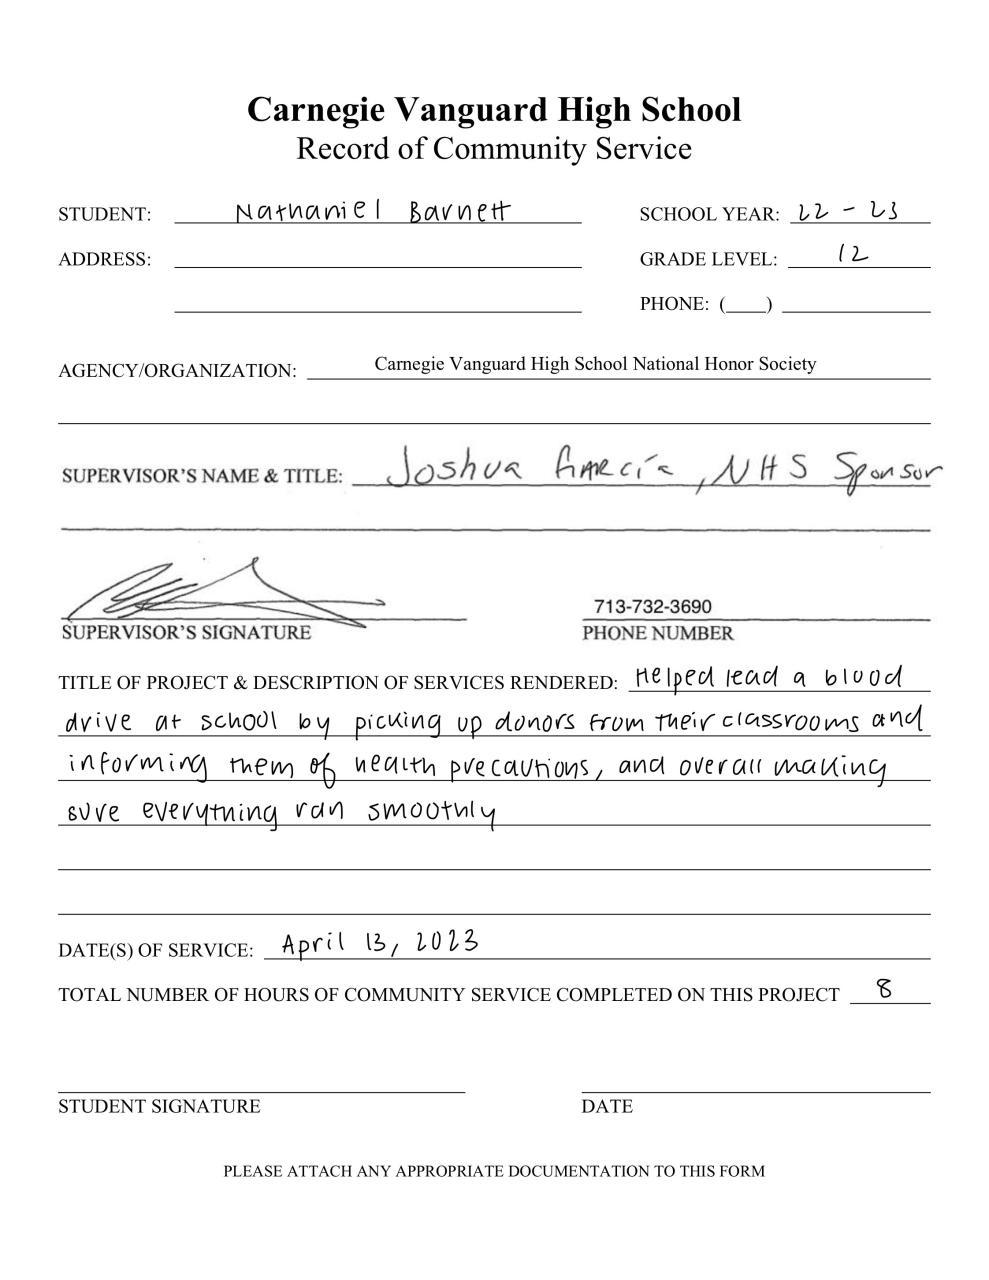 Carnegie Vanguard High School
Record of Community Service
STUDENT: Nathaniel Barnett SCHOOL YEAR: 22 - 23
ADDRESS: GRADE LEVEL: 12
PHONE: (____)
AGENCY/ORGANIZATION: Carnegie Vanguard High School National Honor Society
SUPERVISOR'S NAME & TITLE: Joshua García, NHS Sponsor
713-732-3690
SUPERVISOR'S SIGNATURE PHONE NUMBER
TITLE OF PROJECT & DESCRIPTION OF SERVICES RENDERED: Helped lead a blood
drive at school by picking up donors from their classrooms and
informing them of health precautions, and overall making
sure everything ran smoothly
DATE(S) OF SERVICE: April 13, 2023
TOTAL NUMBER OF HOURS OF COMMUNITY SERVICE COMPLETED ON THIS PROJECT 8
STUDENT SIGNATURE DATE
PLEASE ATTACH ANY APPROPRIATE DOCUMENTATION TO THIS FORM